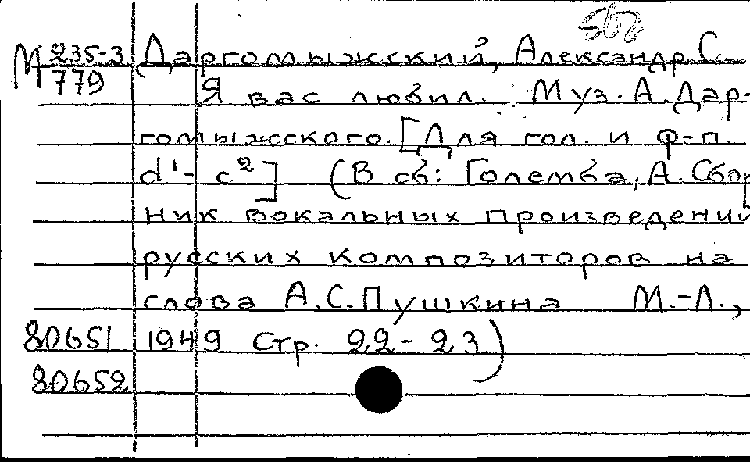 М 235-3 Даргомыжский, Александр С.
779 Я вас любил. Муз. А. Дар-
гомыжского. [Для гол. и ф-п.
d¹ - c²] (В сб: Големба, А. Сбор
ник вокальных произведений
русских композиторов на
слова А.С. Пушкина М.-Л.,
80651 1949 Стр. 22-23)
80652